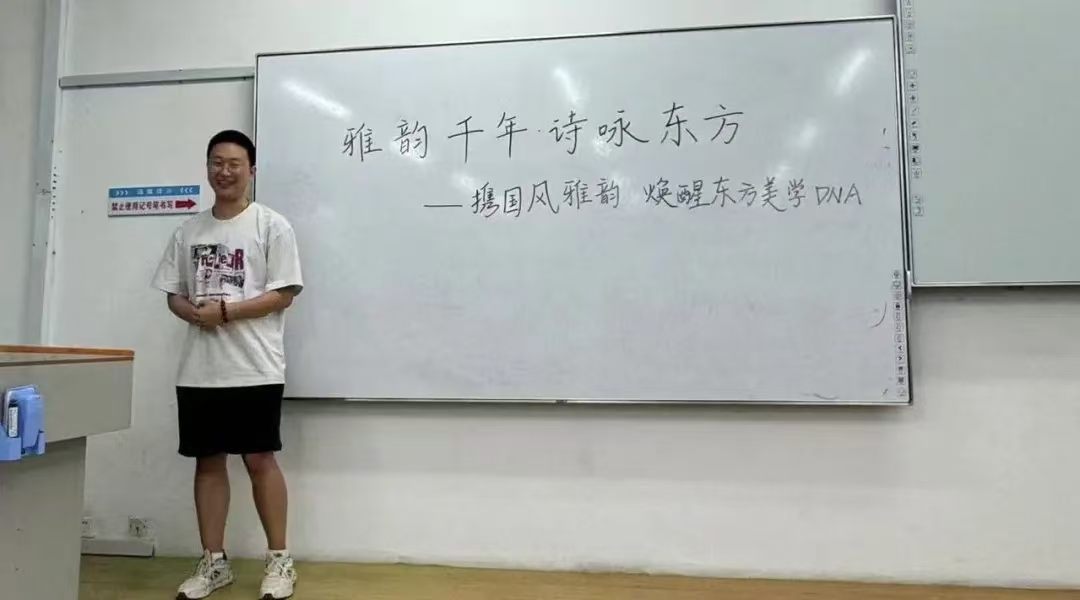 雅韵千年·诗咏东方
——携国风雅韵 焕醒东方美学DNA
禁止使用记号笔书写